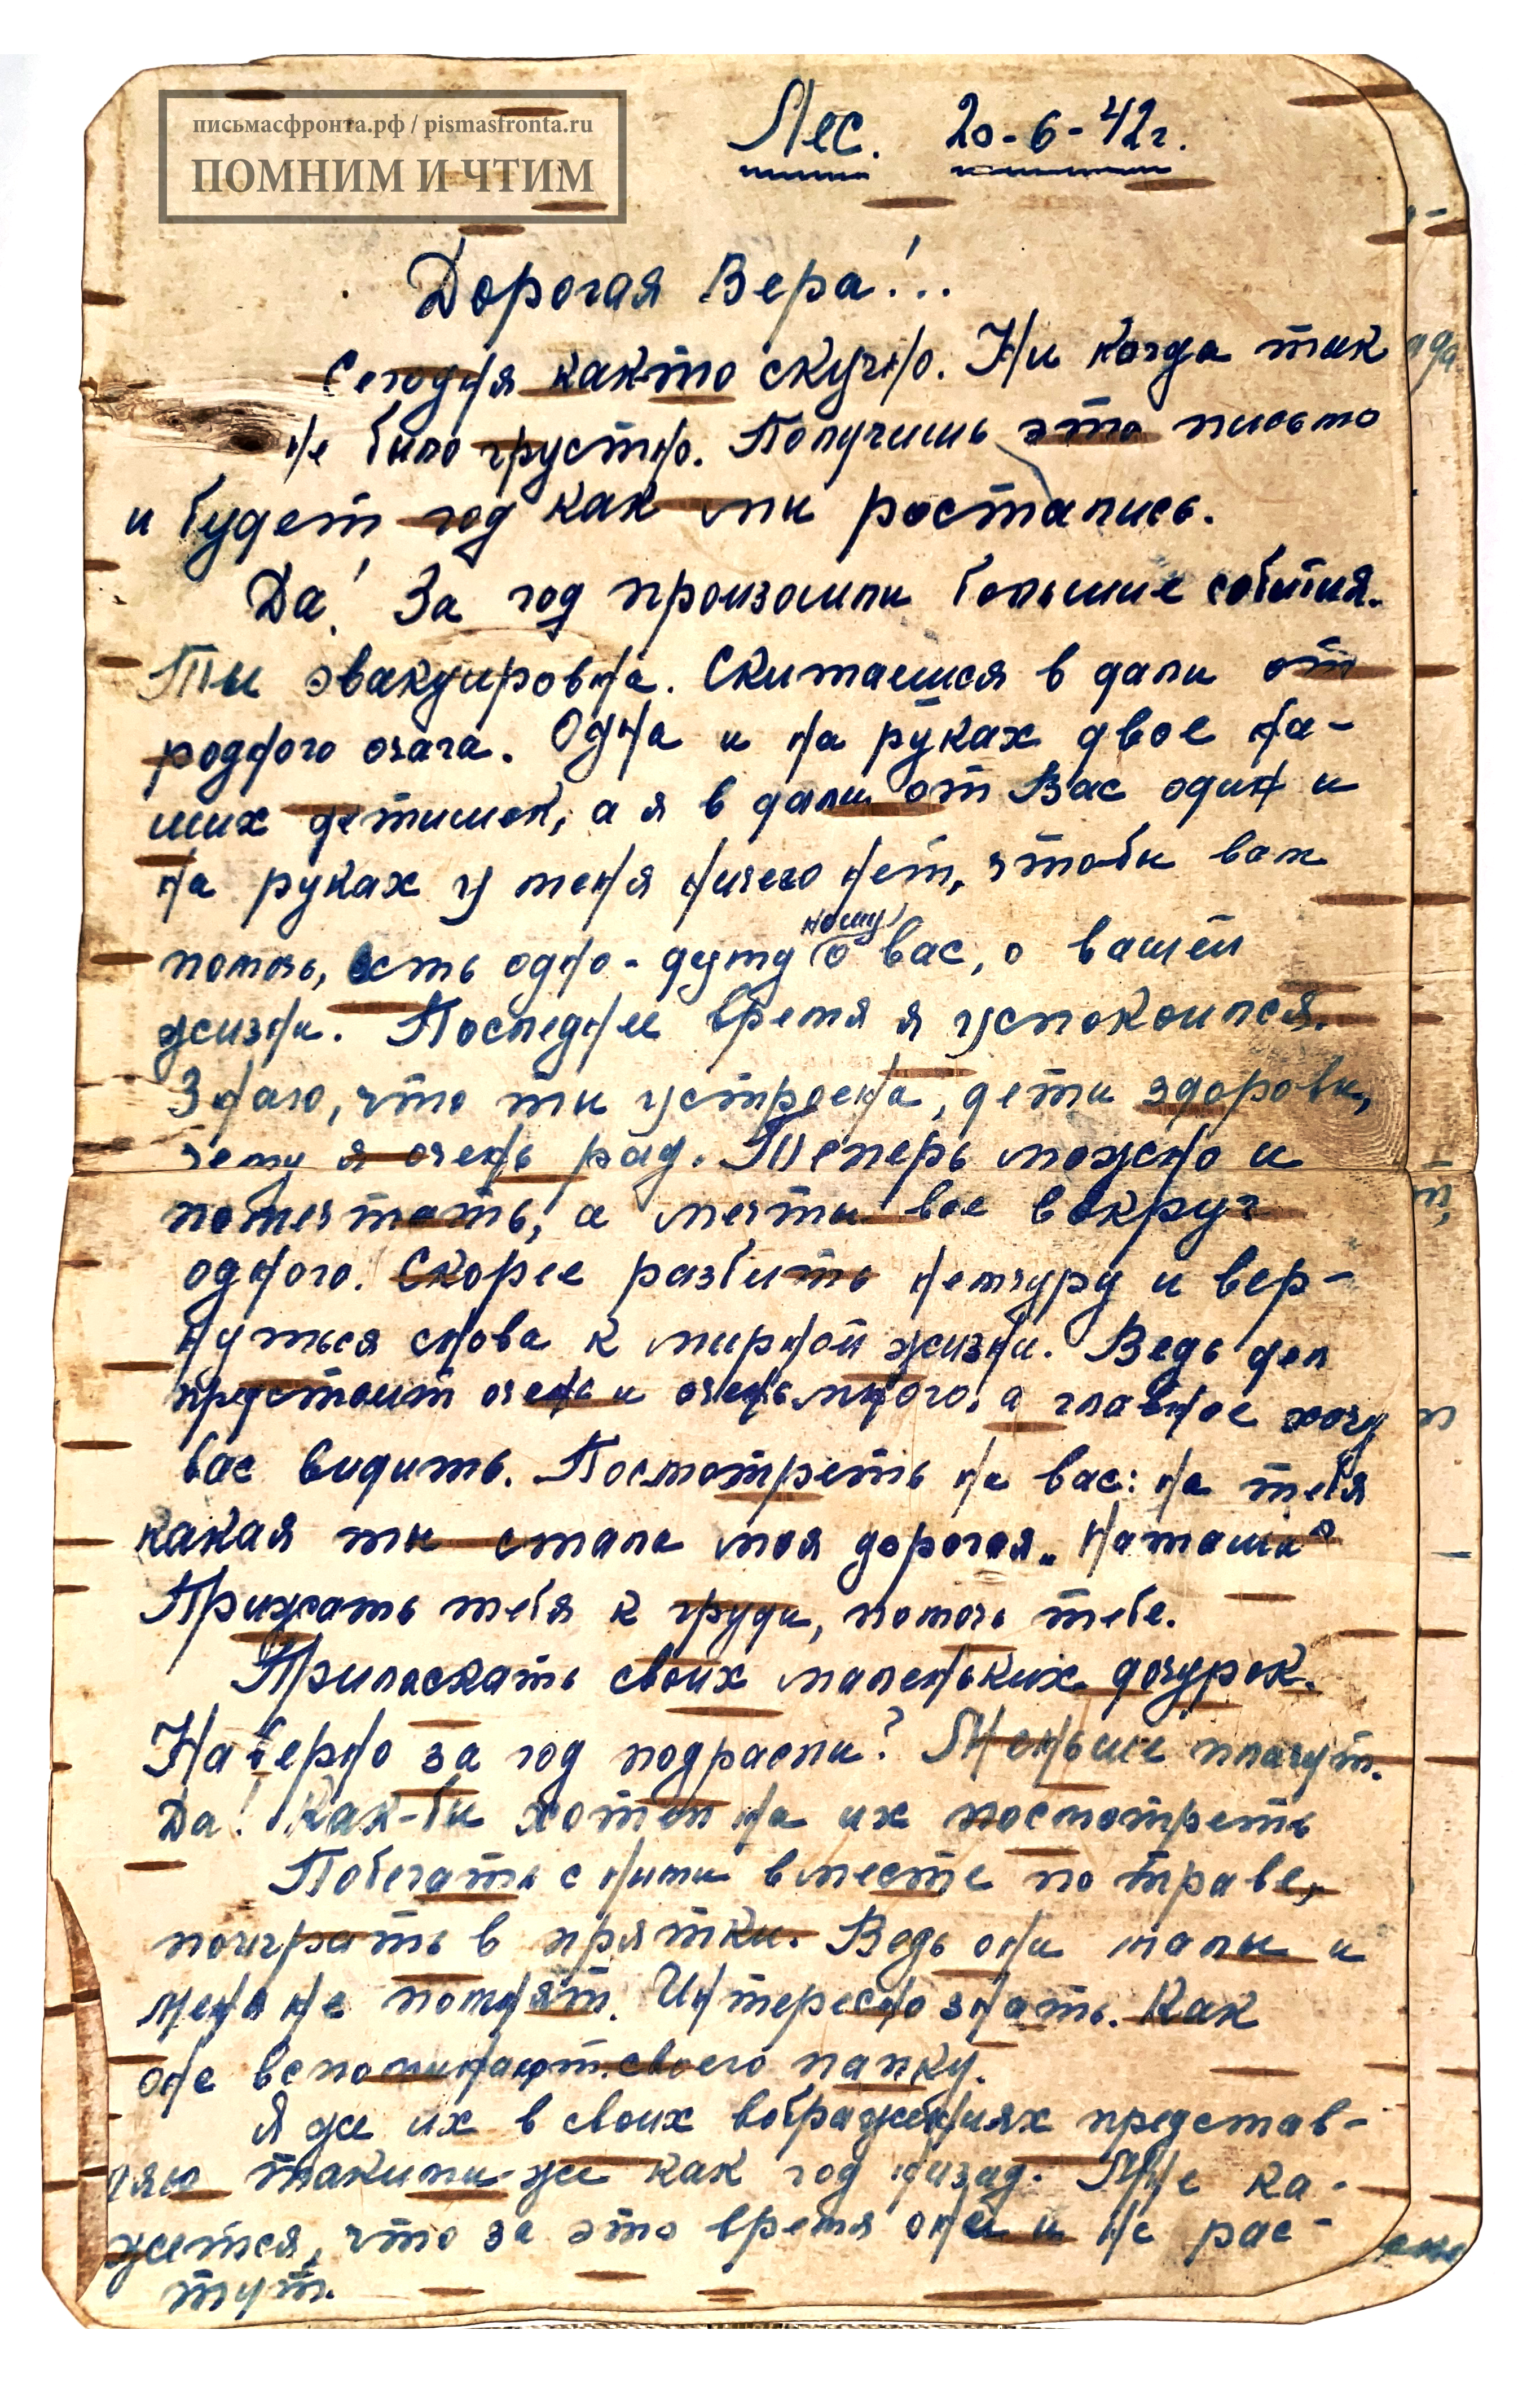 письмасфронта.рф / pismasfronta.ru
ПОМНИМ И ЧТИМ
Лес. 20-6-42г.
Дорогая Вера!..
Сегодня както скучно. Ни когда так
не было грустно. Получишь это письмо
и будет год как мы ростались.
Да! За год произошли большие события.
Ты эвакуирована. Скитаешся в дали от
родного очага. Одна и на руках двое на-
ших детишек, а я в дали от Вас один и
на руках у меня ничего нет, чтобы вам
помочь, есть одно - думу ношу о вас, о вашей
жизни. Последнее время я успокоился.
Знаю, что ты устроена, дети здоровы,
чему я очень рад. Теперь можно и
помечтать, а мечты все вокруг
одного. Скорее разбить немчуру и вер-
нуться снова к мирной жизни. Ведь дел
предстоит очень и очень много, а главное хочу
вас видить. Посмотреть на вас: на тебя
какая ты стала моя дорогая „Наташа"
Прижать тебя к груди, помочь тебе.
Приласкать своих маленьких дочурок.
Наверно за год подрасли? Меньше плачут.
Да! Как-бы хотел на их посмотреть
Побегать с ними вместе по траве,
поиграть в прятки. Ведь они малы и
меня не помнят. Интересно знать. Как
оне вспоминают своего папку.
Я же их в своих вображениях представ-
ляю такими-же как год назад. Мне ка-
жется, что за это время они и не рас-
тут.